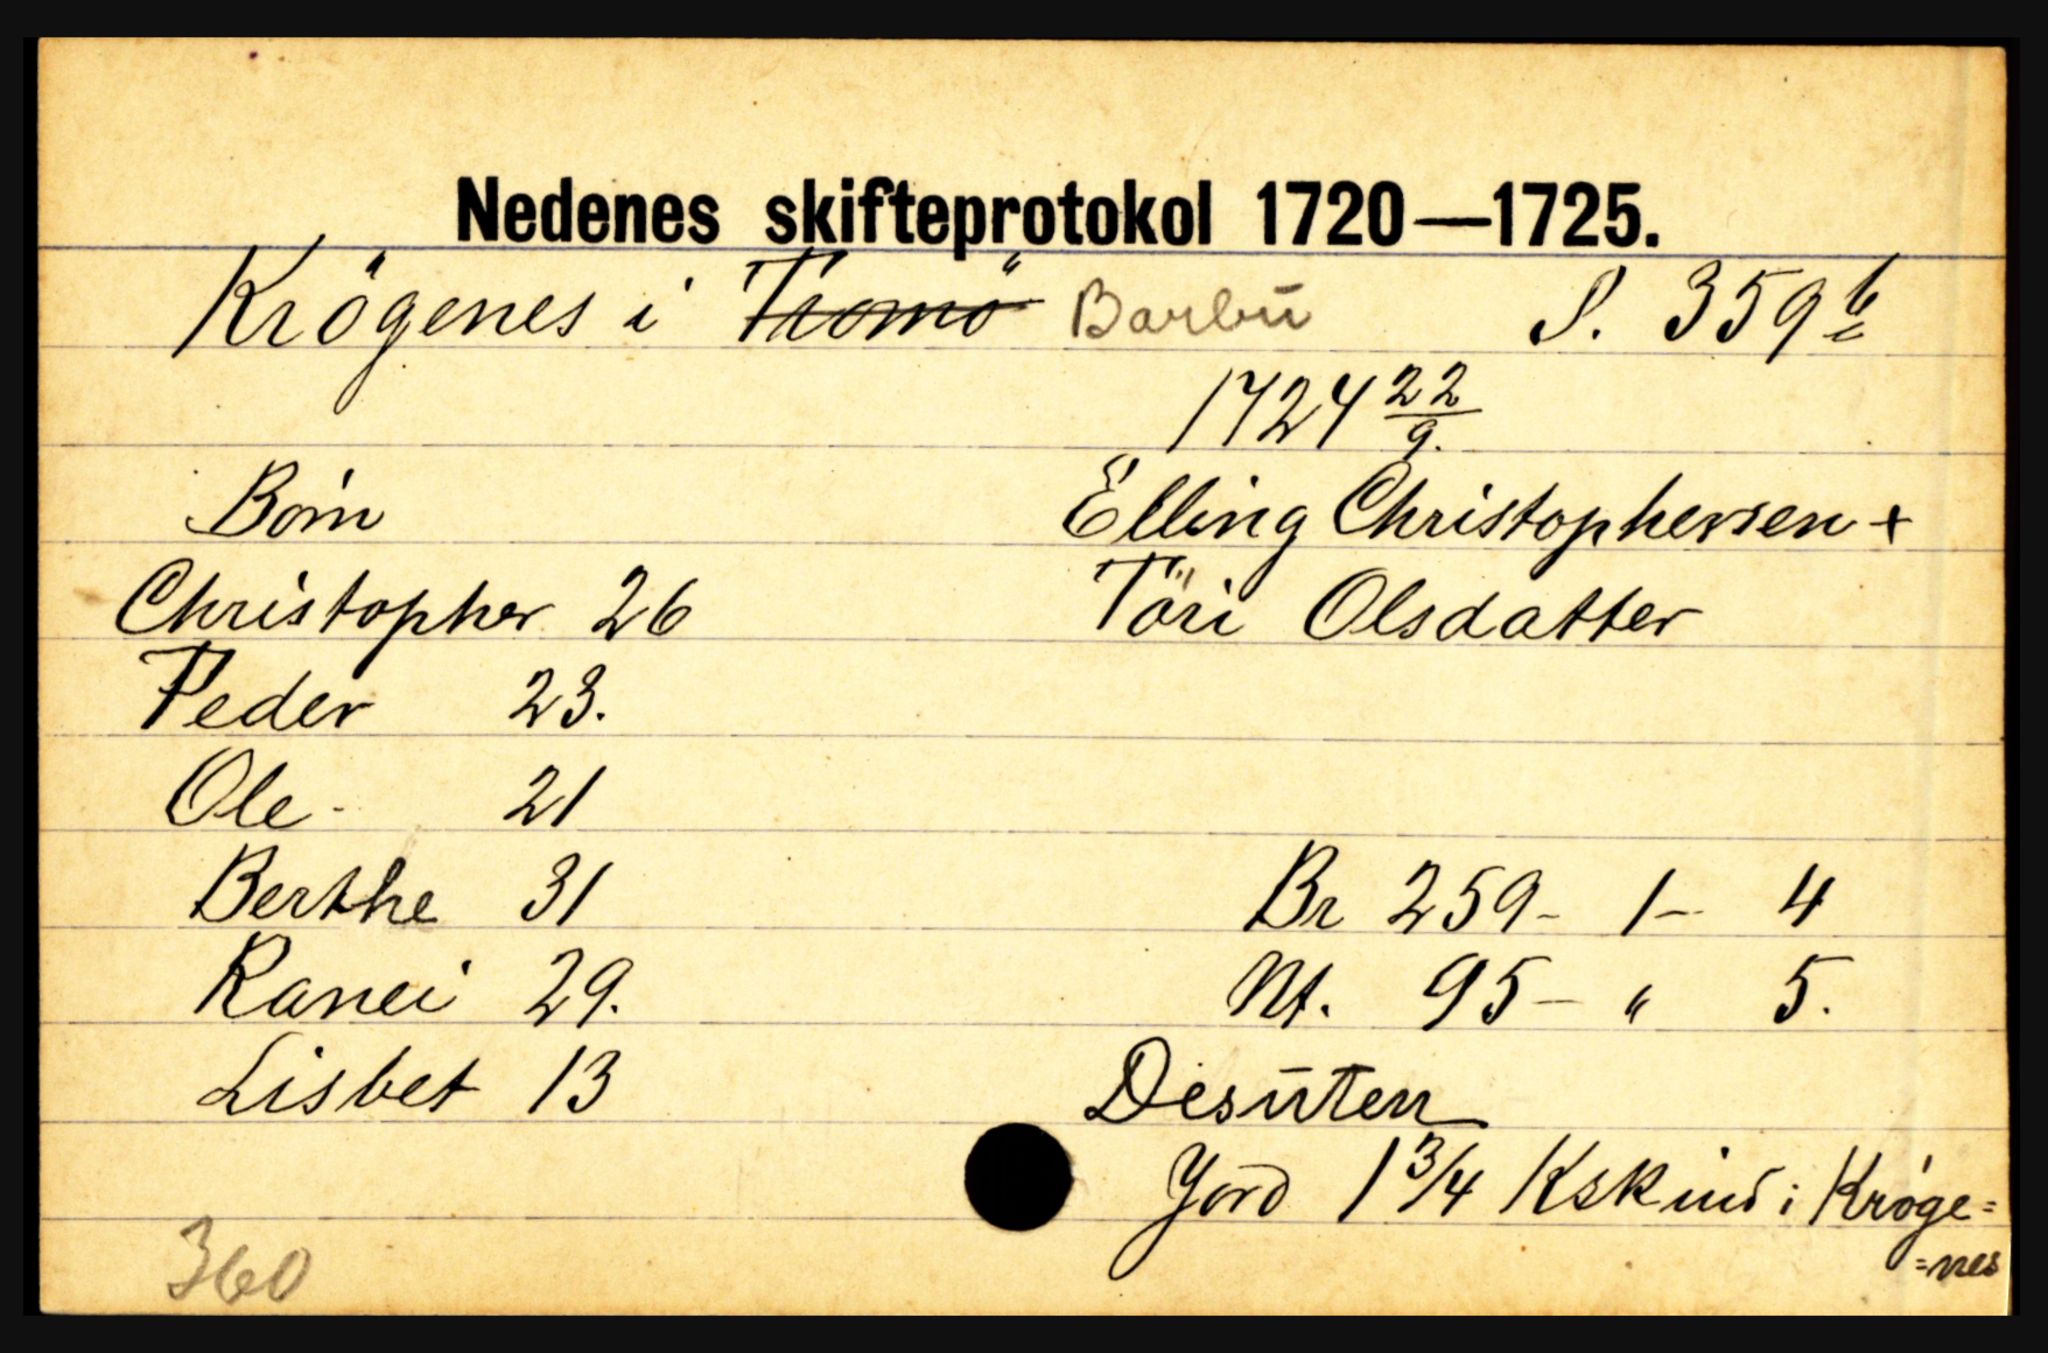 Nedenes skifteprotokol 1720—1725.
Krögenes i Tromö Barbu S. 359 b
1724 22/9.
Börn Elling Christophersen +
Christopher 26 Töri Olsdatter
Peder 23.
Ole - 21
Berthe 31 Br 259 - 1 - 4
Ranei 29. Nt. 95 - " 5.
Lisbet 13 Desuten
Jord 1 3/4 Kskind i Krøge=
=nes
360